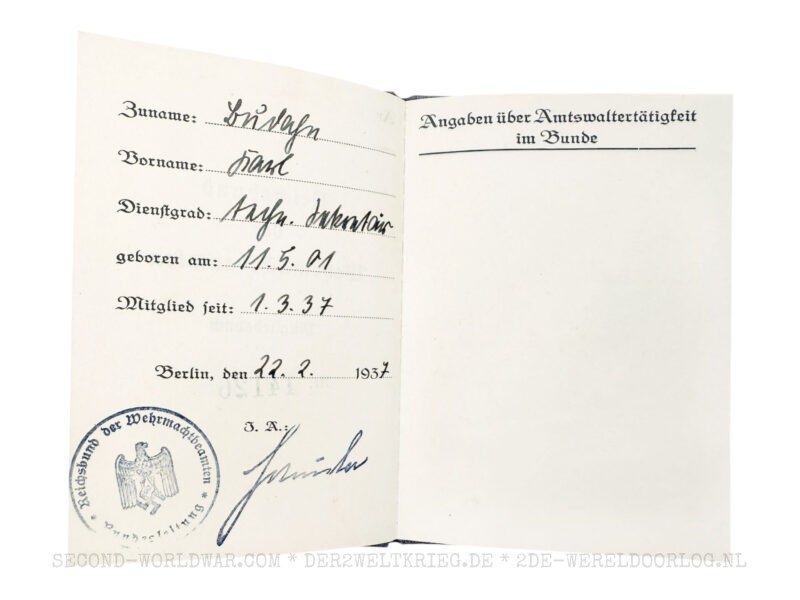 Zuname: Budahn
Vorname: Karl
Dienstgrad: techn. Sekretär
geboren am: 11.5.01
Mitglied seit: 1.3.37
Berlin, den 22.2. 1937
J. A.:
Reichsbund der Wehrmachtbeamten
* Bundesleitung *
Angaben über Amtswaltertätigkeit
im Bunde
SECOND-WORLDWAR.COM * DER2WELTKRIEG.DE * 2DE-WERELDOORLOG.NL